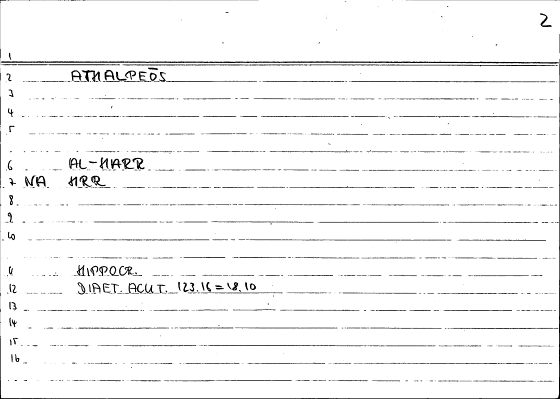 2
1
2 ATHALPEŌS
3
4
5
6 AL-HARR
7 NA HRR
8
9
10
11 HIPPOCR.
12 DIAET. ACUT. 123.16 = 18.10
13
14
15
16